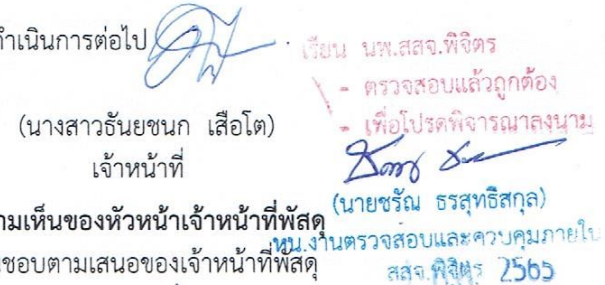 ดำเนินการต่อไป
(นางสาวธันยชนก เสือโต)
เจ้าหน้าที่
ามเห็นของหัวหน้าเจ้าหน้าที่พัสดุ
นชอบตามเสนอของเจ้าหน้าที่พัสดุ
เรียน นพ.สสจ.พิจิตร
- ตรวจสอบแล้วถูกต้อง
- เพื่อโปรดพิจารณาลงนาม
(นายชรัณ ธรสุทธิสกุล)
หน.งานตรวจสอบและควบคุมภายใน
สสจ.พิจิตร 2565